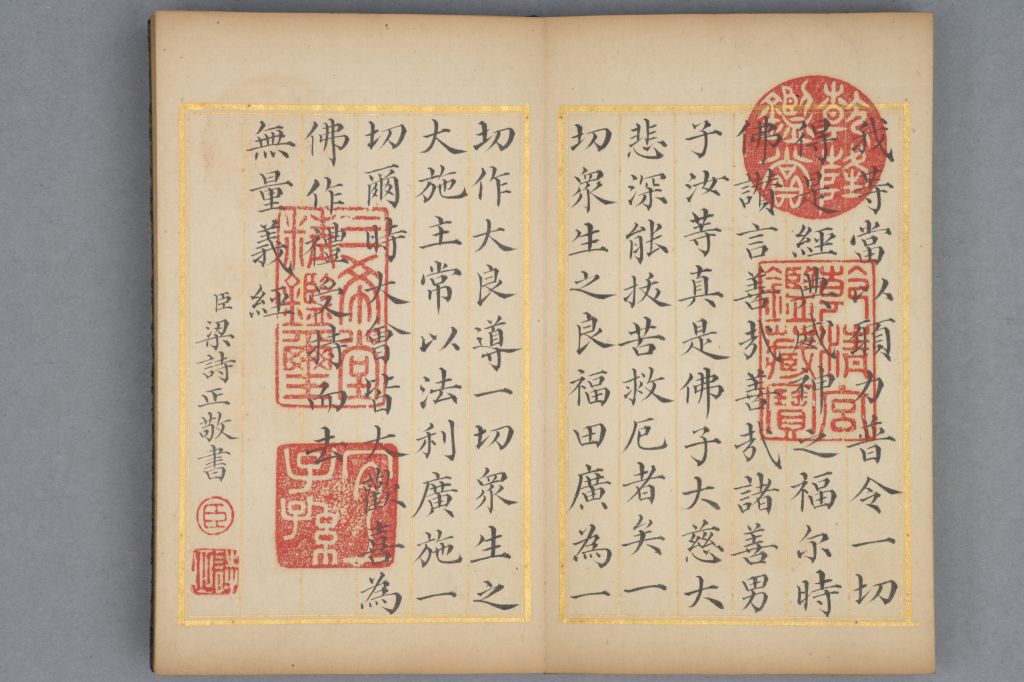 我等當以願力普令一切
得是經典威神之福尔時
佛讚言善哉善哉諸善男
子汝等真是佛子大慈大
悲深能拔苦救厄者矣一
切眾生之良福田廣為一
切作大良導一切眾生之
大施主常以法利廣施一
切爾時大會皆大歡喜為
佛作禮受持而去
無量義經
臣梁詩正敬書
乾隆鑑賞
乾清宮鑑藏寶
三希堂精鑑璽
宜子孫
臣
詩正